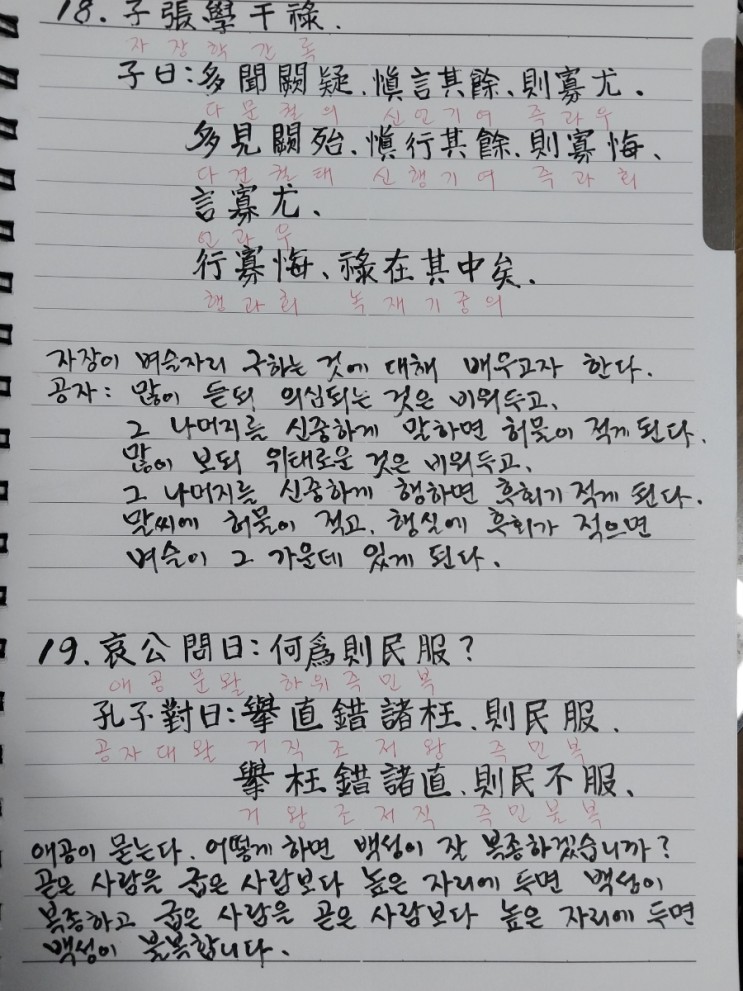 18. 子張學干祿.
자 장 학 간 록
子曰:多聞闕疑、愼言其餘、則寡尤、
다 문 궐 의 신 언 기 여 즉 과 우
多見闕殆、愼行其餘、則寡悔、
다 견 궐 태 신 행 기 여 즉 과 회
言寡尤、
언 과 우
行寡悔、祿在其中矣.
행 과 회 녹 재 기 중 의
자장이 벼슬자리 구하는 것에 대해 배우고자 한다.
공자: 많이 듣되 의심되는 것은 비워두고,
그 나머지를 신중하게 말하면 허물이 적게 된다.
많이 보되 위태로운 것은 비워두고,
그 나머지를 신중하게 행하면 후회가 적게 된다.
말씨에 허물이 적고, 행실에 후회가 적으면
벼슬이 그 가운데 있게 된다.
19. 哀公問曰:何爲則民服?
애 공 문 왈 하 위 즉 민 복
孔子對曰:擧直錯諸枉、則民服、
공 자 대 왈 거 직 조 저 왕 즉 민 복
擧枉錯諸直、則民不服、
거 왕 조 저 직 즉 민 불 복
애공이 묻는다. 어떻게 하면 백성이 잘 복종하겠습니까?
곧은 사람을 굽은 사람보다 높은 자리에 두면 백성이
복종하고 굽은 사람을 곧은 사람보다 높은 자리에 두면
백성이 불복합니다.